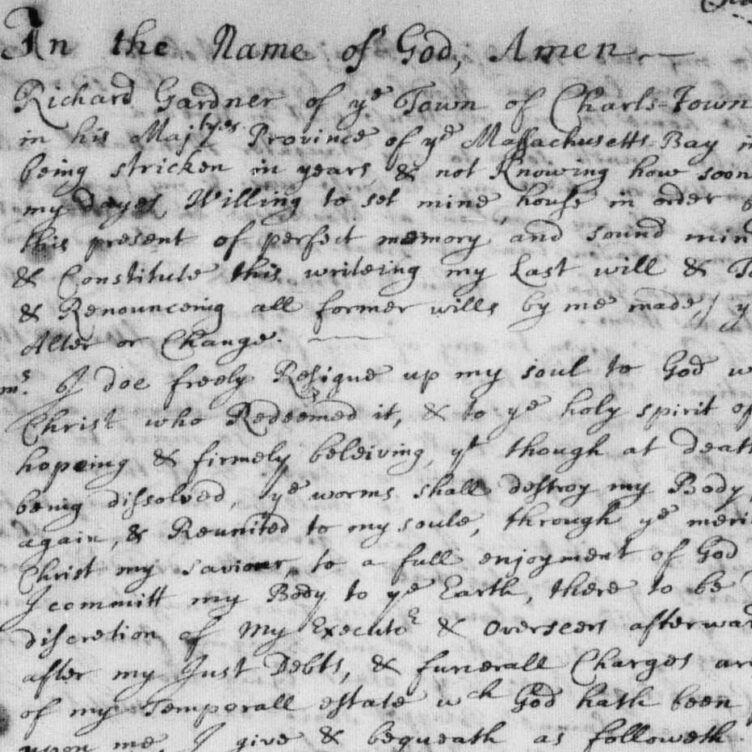 In the Name of God, Amen
Richard Gardner of yͤ Town of Charls-Town
in his Majtyes Province of yͤ Massachusetts Bay
being stricken in years, & not Knowing how soon
my dayes, Willing to set mine house in order
this present of perfect memory and sound min
& Constitute this writeing my Last will &
& Renounceing all former wills by me made,
Alter or Change.
I doe freely Resigne up my soul to God
Christ who Redeemed it, & to yͤ holy spirit of
hopeing & firmely beleiving, yͭ though at death
being dissolved, yͤ worms shall destroy my Body
again, & Reunited to my soule, through yͤ meri
Christ my saviour, to a full enjoyment of God
I committ my Body to yͤ Earth, there to be
discretion of my Executoʳ & overseers afterwar
after my Just Debts, & funerall Charges ar
of my Temporall estate wᶜʰ God hath been
upon me, I give & bequeath as followeth